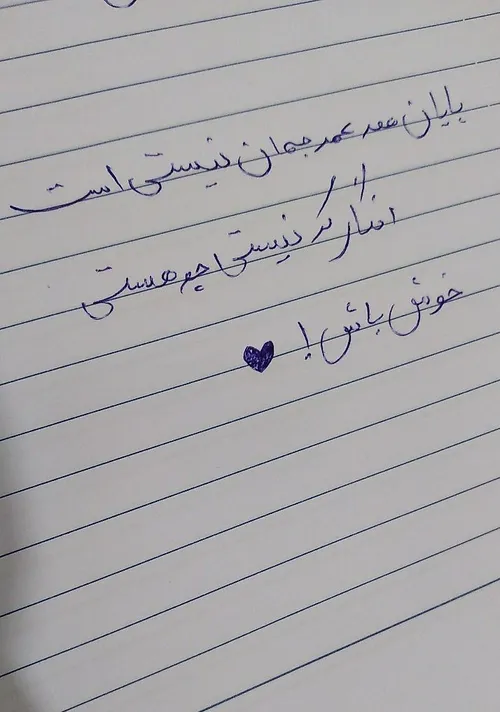 پایان همه عمر جهان نیستی است
انگار که نیستی چو هستی
خوش باش!